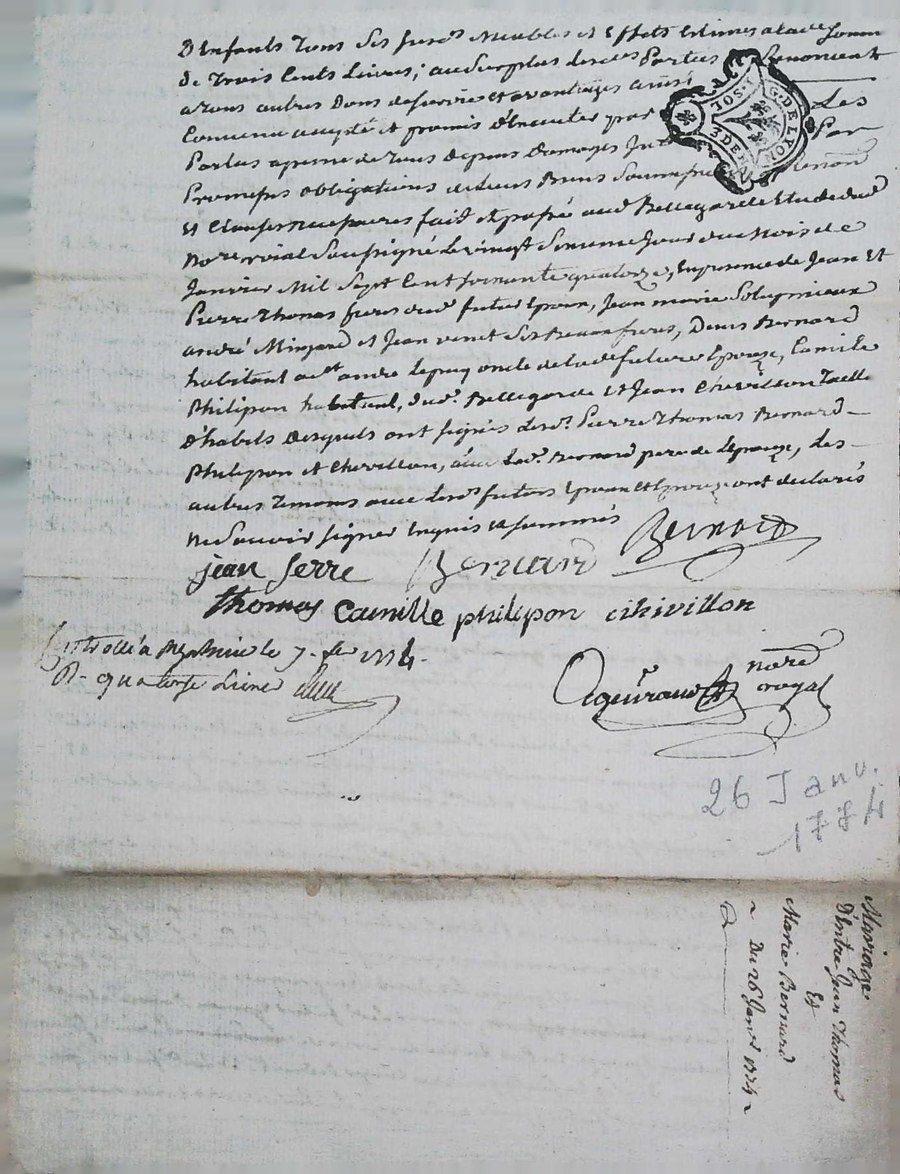 D'Enfants Tous ses Meubles et Effets Estimes a la de Somme
de Trois Cents Livres; au Surplus lesdtes Parties Renoncent
a tous autres Dons de survie et avantages ainsi
Convenu accepté et promis d'Executer par Les
Parties a peine de Tous depens Domages Par
Promesses obligations de leurs Biens Renon
et Clauses necessaires fait et passé aud Bellegarde Etude du
Nore roial Soussigné Le vingt Sixieme Jour du Mois de
Janvier Mil Sept Cent soixante quatorze, En presence de Jean Et
Pierre Thomas freres dud futur Epoux, Jean marie
andré et Jean ses Beaux freres, Denis Bernard
habitant a st andré Lepuy oncle de lade future Epouse, Camile
Philipon habitant dud. Bellegarde Et Jean Chevillon Taille
d'habits desquels ont signés lesd. Pierre Thomas Bernard
Philipon et Chevillon, avec led. Bernard pere de L'epouse, Les
autres Temoins avec lesd futurs Epoux et Epouse ont declarés
ne Savoir signer Enquis et sommés
Bernard
jean serre Bernard
thomas Camille philipon chivillon
Controllé a le 7. fe 1774.
R. quatorze Livres
noré
royal
G. DE LYON
26 Janv.
1774
Mariage
D'Entre Jean Thomas
Et
Marie Bernard
Du 26 Janvr 1774